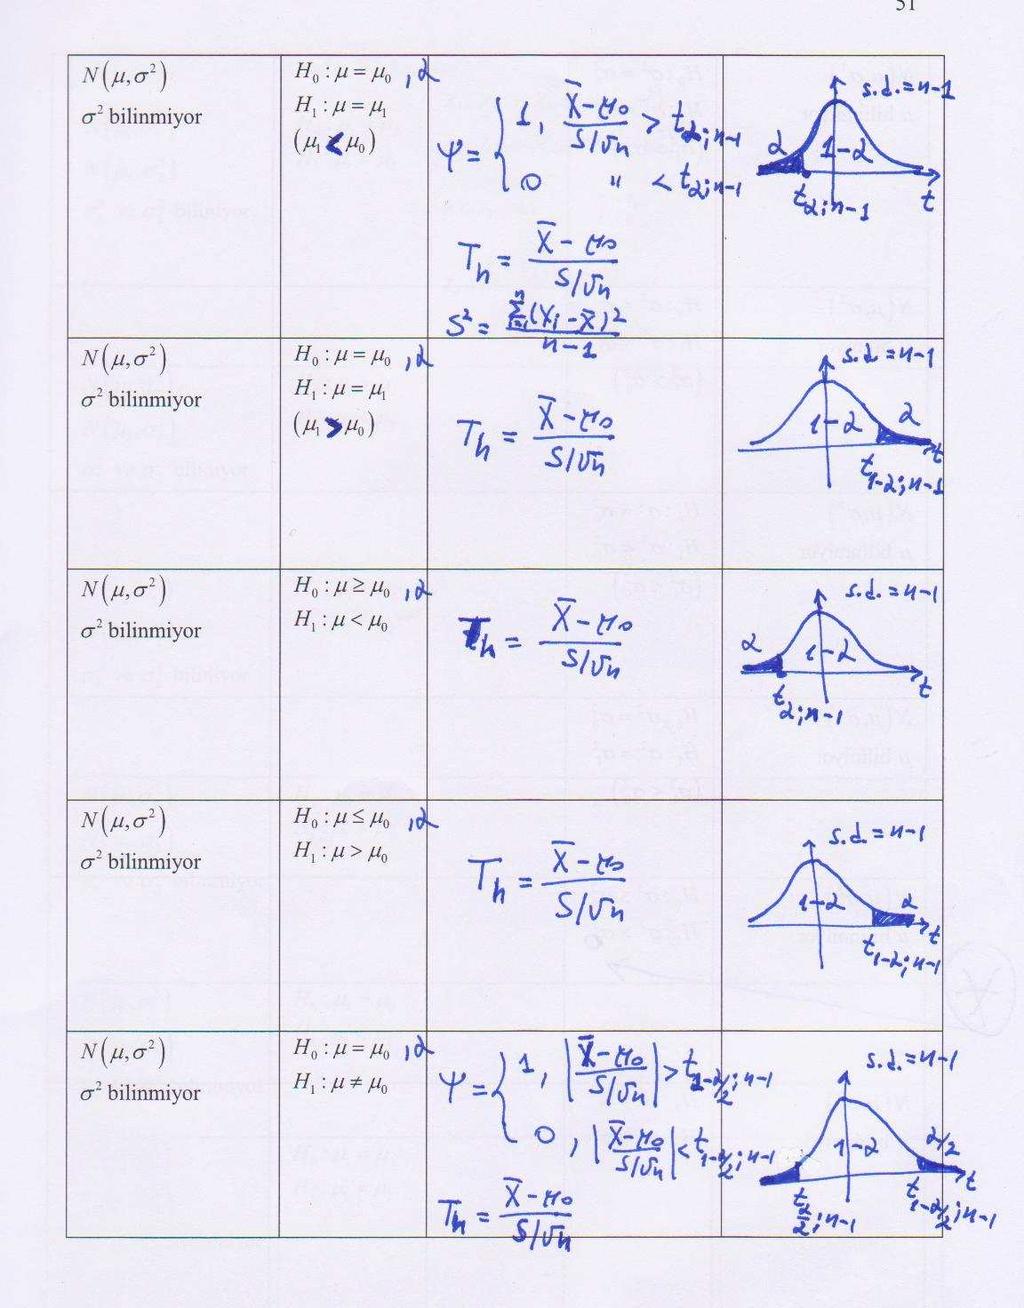 51
N(μ,σ²)
σ² bilinmiyor
H₀ : μ = μ₀ ,α
H₁ : μ = μ₁
(μ₁ < μ₀)
ψ = { 1, (X̄-μ₀)/(S/√n) > t_{α;n-1}
0 " < t_{α;n-1}
T_h = (X̄-μ₀)/(S/√n)
S² = Σ_{i=1}^{n}(X_i-X̄)²/(n-1)
s.d.=n-1
α 1-α
t_{α;n-1} t
N(μ,σ²)
σ² bilinmiyor
H₀ : μ = μ₀ ,α
H₁ : μ = μ₁
(μ₁ > μ₀)
T_h = (X̄-μ₀)/(S/√n)
s.d.=n-1
1-α α
t
t_{1-α;n-1}
N(μ,σ²)
σ² bilinmiyor
H₀ : μ ≥ μ₀ ,α
H₁ : μ < μ₀
T_h = (X̄-μ₀)/(S/√n)
s.d.=n-1
α 1-α
t_{α;n-1} t
N(μ,σ²)
σ² bilinmiyor
H₀ : μ ≤ μ₀ ,α
H₁ : μ > μ₀
T_h = (X̄-μ₀)/(S/√n)
s.d.=n-1
1-α α
t
t_{1-α;n-1}
N(μ,σ²)
σ² bilinmiyor
H₀ : μ = μ₀ ,α
H₁ : μ ≠ μ₀
ψ = { 1, |(X̄-μ₀)/(S/√n)| > t_{1-α/2;n-1}
0, |(X̄-μ₀)/(S/√n)| < t_{1-α/2;n-1}
T_h = (X̄-μ₀)/(S/√n)
s.d.=n-1
1-α α/2
t
t_{α/2;n-1} t_{1-α/2;n-1}